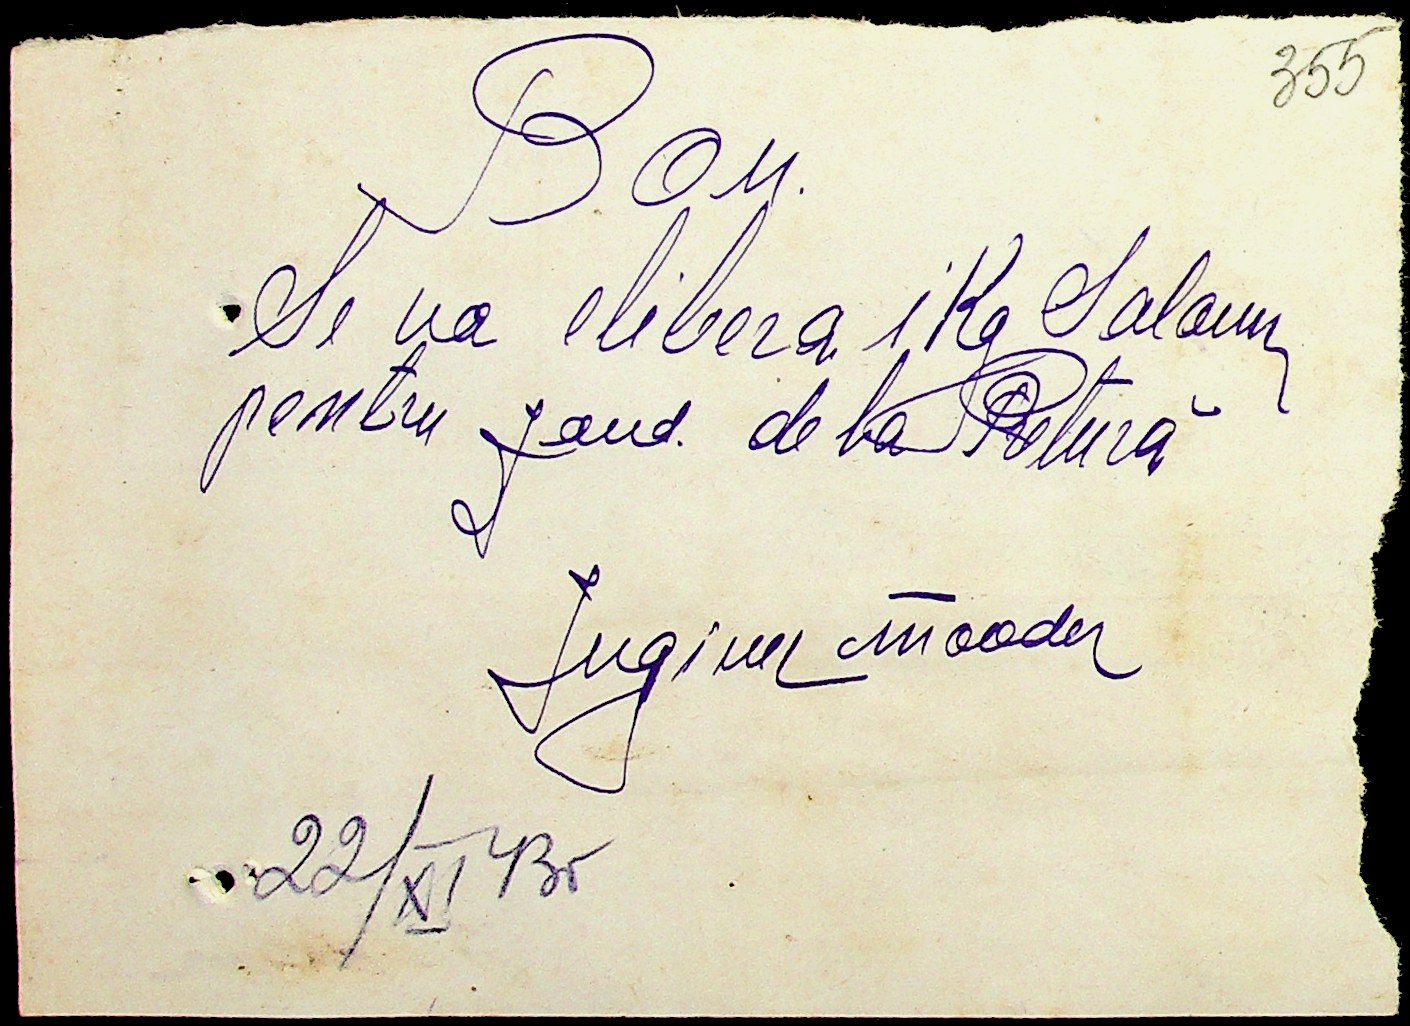 355
Bon.
Se va elibera 1 Kg Salam
pentru Jand. de la Pretură
Inginer
22/XI 43